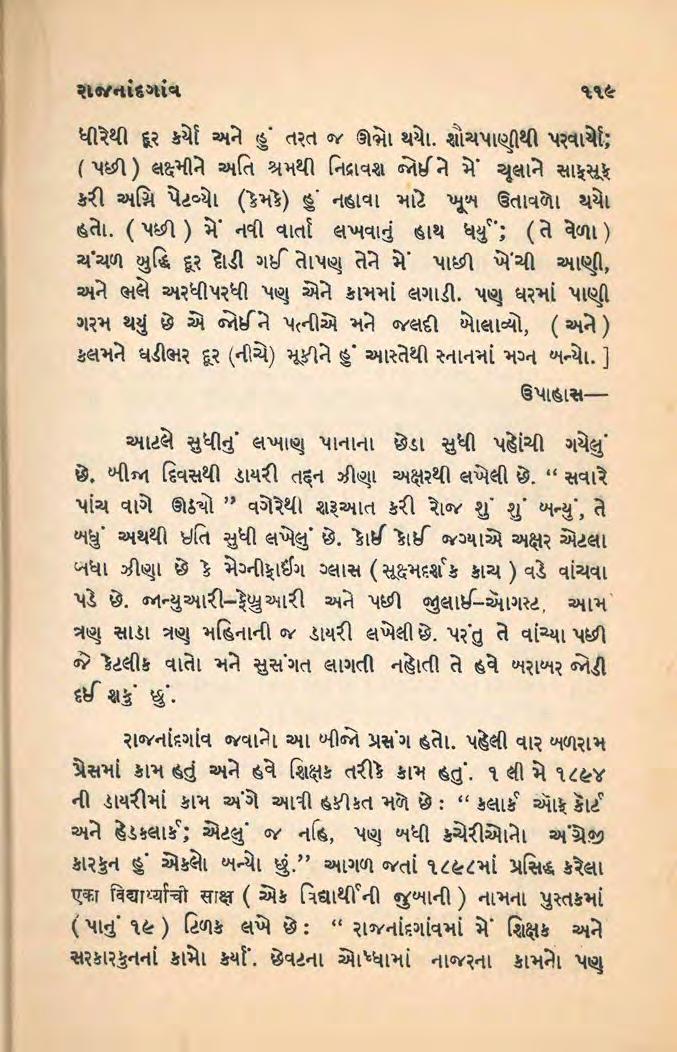 રાજનાંદગાંવ ૧૧૯
ધીરેથી દૂર કર્યો અને હું તરત જ ઊભો થયો. શૌચપાણીથી પરવાર્યો;
( પછી ) લક્ષ્મીને અતિ શ્રમથી નિદ્રાવશ જોઈને મેં ચૂલાને સાફસૂફ
કરી અગ્નિ પેટવ્યો (કેમકે) હું નહાવા માટે ખૂબ ઉતાવળો થયો
હતો. ( પછી ) મેં નવી વાર્તા લખવાનું હાથ ધર્યું; ( તે વેળા )
ચંચળ બુદ્ધિ દૂર દોડી ગઈ તોપણ તેને મેં પાછી ખેંચી આણી,
અને ભલે અરધીપરધી પણ એને કામમાં લગાડી. પણ ઘરમાં પાણી
ગરમ થયું છે એ જોઈને પત્નીએ મને જલદી બોલાવ્યો, ( અને )
કલમને ઘડીભર દૂર (નીચે) મૂકીને હું આસ્તેથી સ્નાનમાં મગ્ન બન્યો. ]
ઉપાહાસ—
આટલે સુધીનું લખાણ પાનાના છેડા સુધી પહોંચી ગયેલું
છે. બીજા દિવસથી ડાયરી તદ્દન ઝીણા અક્ષરથી લખેલી છે. “ સવારે
પાંચ વાગે ઊઠ્યો ” વગેરેથી શરૂઆત કરી રોજ શું શું બન્યું, તે
બધું અથથી ઇતિ સુધી લખેલું છે. કોઈ કોઈ જગ્યાએ અક્ષર એટલા
બધા ઝીણા છે કે મેગ્નીફાઈંગ ગ્લાસ ( સૂક્ષ્મદર્શક કાચ ) વડે વાંચવા
પડે છે. જાન્યુઆરી–ફેબ્રુઆરી અને પછી જુલાઈ–ઑગસ્ટ, આમ
ત્રણ સાડા ત્રણ મહિનાની જ ડાયરી લખેલી છે. પરંતુ તે વાંચ્યા પછી
જે કેટલીક વાતો મને સુસંગત લાગતી નહોતી તે હવે બરાબર જોડી
દઈ શકું છું.
રાજનાંદગાંવ જવાનો આ બીજો પ્રસંગ હતો. પહેલી વાર બળરામ
પ્રેસમાં કામ હતું અને હવે શિક્ષક તરીકે કામ હતું. ૧ લી મે ૧૮૯૪
ની ડાયરીમાં કામ અંગે આવી હકીકત મળે છે : “ ક્લાર્ક ઑફ કોર્ટ
અને હેડક્લાર્ક; એટલું જ નહિ, પણ બધી કચેરીઓનો અંગ્રેજી
કારકુન હું એકલો બન્યો છું.” આગળ જતાં ૧૮૯૮માં પ્રસિદ્ધ કરેલા
एका विद्यार्थ्याची साक्ष ( એક વિદ્યાર્થીની જુબાની ) નામના પુસ્તકમાં
( પાનું ૧૯ ) ટિળક લખે છે : “ રાજનાંદગાંવમાં મેં શિક્ષક અને
સરકારકુનનાં કામો કર્યાં. છેવટના ઓધ્ધામાં નાજરના કામનો પણ